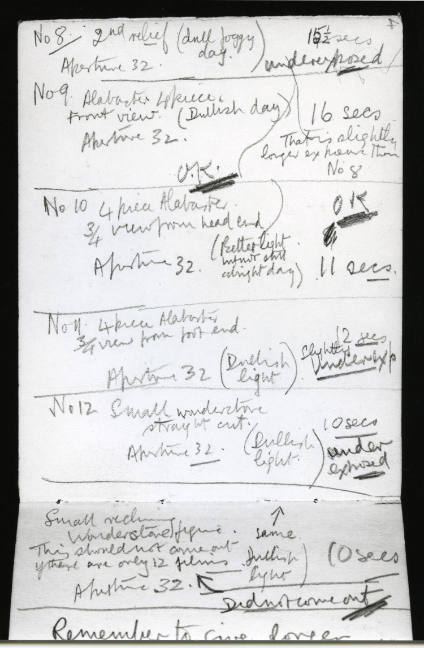 No 8. 2nd relief (dull foggy day.) 15½ secs
Aperture 32. underexposed
No 9 Alabaster 4 piece.
Front view. (Dullish day) 16 secs
Aperture 32. That is slightly
longer exposure than
No 8
O.K.
No 10 4 piece Alabaster. OK
3/4 view from head end
(Better light but not still a bright day)
Aperture 32. 11 secs.
No 11. 4 piece Alabaster
3/4 view from foot end. 12 secs
Aperture 32 (Dullish light) Slightly underexp
No 12 Small wonderstone
straight cut. 10 secs
Aperture 32. (Dullish light.) under
exposed
Small reclining
Wonderstone figure. same
This should not come out
if there are only 12 films. Dullish light) 10 secs
Aperture 32.
Did not come out
Remember to give longer